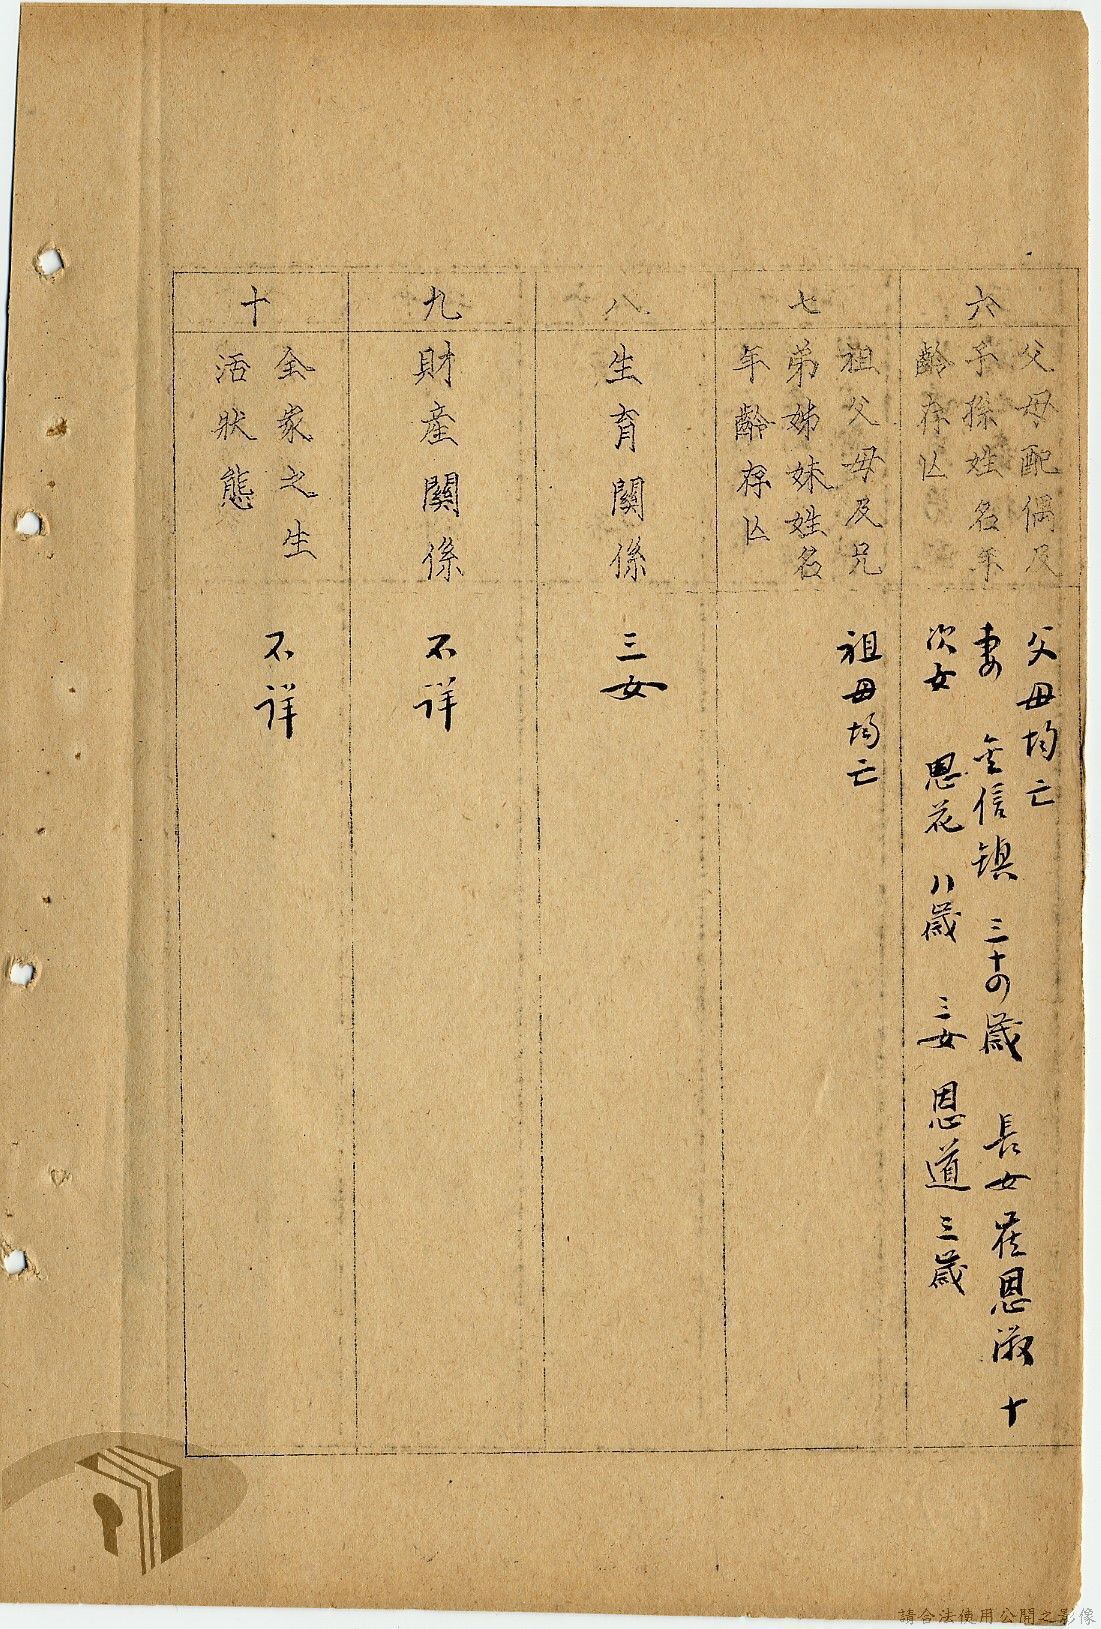 六
父母配偶及
子孫姓名年
齡存亡
父母均亡
妻 金信鎮 三十四歲 長女 崔恩淑 十
次女 恩花 八歲 三女 恩道 三歲
七
祖父母及兄
弟姊妹姓名
年齡存亡
祖母均亡
八
生育關係
三女
九
財產關係
不詳
十
全家之生
活狀態
不詳
請合法使用公開之影像